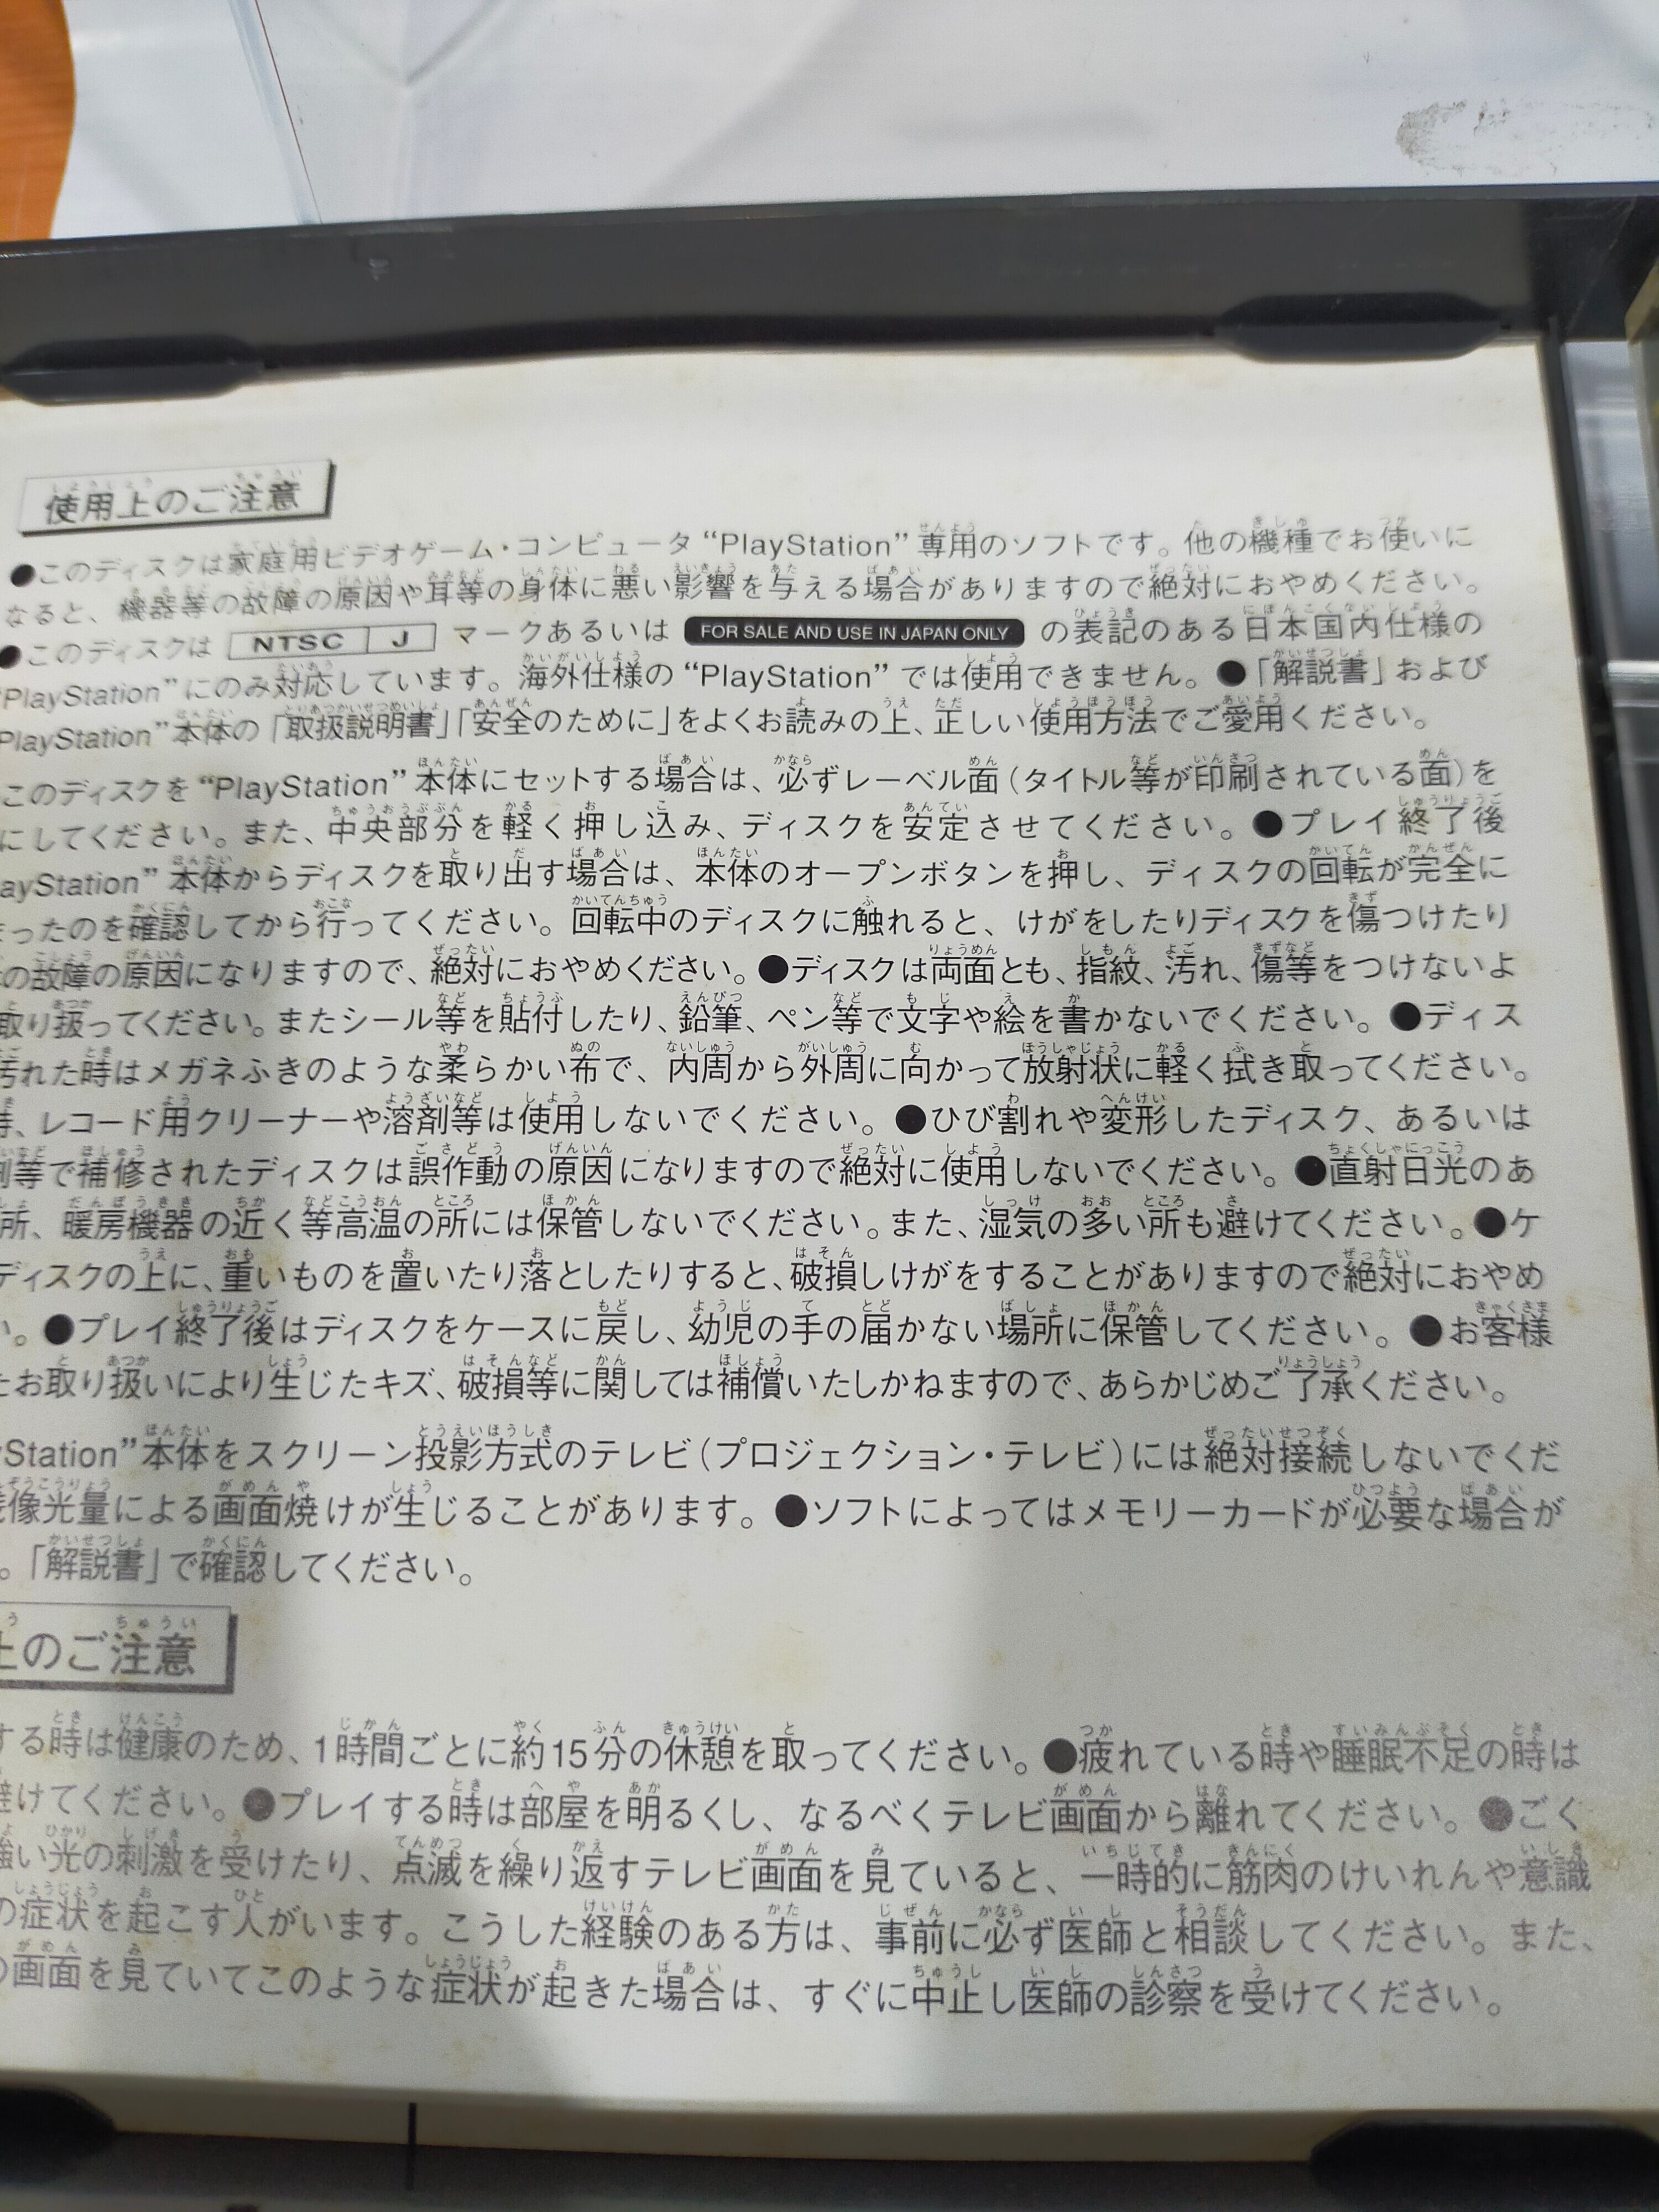 使用上のご注意
●このディスクは家庭用ビデオゲーム・コンピュータ“PlayStation”専用のソフトです。他の機種でお使いに
なると、機器等の故障の原因や耳等の身体に悪い影響を与える場合がありますので絶対におやめください。
●このディスクは NTSC J マークあるいは FOR SALE AND USE IN JAPAN ONLY の表記のある日本国内仕様の
“PlayStation”にのみ対応しています。海外仕様の“PlayStation”では使用できません。●「解説書」および
PlayStation”本体の「取扱説明書」「安全のために」をよくお読みの上、正しい使用方法でご愛用ください。
このディスクを“PlayStation”本体にセットする場合は、必ずレーベル面(タイトル等が印刷されている面)を
にしてください。また、中央部分を軽く押し込み、ディスクを安定させてください。●プレイ終了後
ayStation”本体からディスクを取り出す場合は、本体のオープンボタンを押し、ディスクの回転が完全に
ったのを確認してから行ってください。回転中のディスクに触れると、けがをしたりディスクを傷つけたり
の故障の原因になりますので、絶対におやめください。●ディスクは両面とも、指紋、汚れ、傷等をつけないよ
取り扱ってください。またシール等を貼付したり、鉛筆、ペン等で文字や絵を書かないでください。●ディス
汚れた時はメガネふきのような柔らかい布で、内周から外周に向かって放射状に軽く拭き取ってください。
、レコード用クリーナーや溶剤等は使用しないでください。●ひび割れや変形したディスク、あるいは
剤等で補修されたディスクは誤作動の原因になりますので絶対に使用しないでください。●直射日光のあ
所、暖房機器の近く等高温の所には保管しないでください。また、湿気の多い所も避けてください。●ケ
ディスクの上に、重いものを置いたり落としたりすると、破損しけがをすることがありますので絶対におやめ
い。●プレイ終了後はディスクをケースに戻し、幼児の手の届かない場所に保管してください。●お客様
たお取り扱いにより生じたキズ、破損等に関しては補償いたしかねますので、あらかじめご了承ください。
yStation”本体をスクリーン投影方式のテレビ(プロジェクション・テレビ)には絶対接続しないでくだ
残像光量による画面焼けが生じることがあります。●ソフトによってはメモリーカードが必要な場合が
。「解説書」で確認してください。
上のご注意
する時は健康のため、1時間ごとに約15分の休憩を取ってください。●疲れている時や睡眠不足の時は
避けてください。●プレイする時は部屋を明るくし、なるべくテレビ画面から離れてください。●ごく
強い光の刺激を受けたり、点滅を繰り返すテレビ画面を見ていると、一時的に筋肉のけいれんや意識
の症状を起こす人がいます。こうした経験のある方は、事前に必ず医師と相談してください。また、
の画面を見ていてこのような症状が起きた場合は、すぐに中止し医師の診察を受けてください。